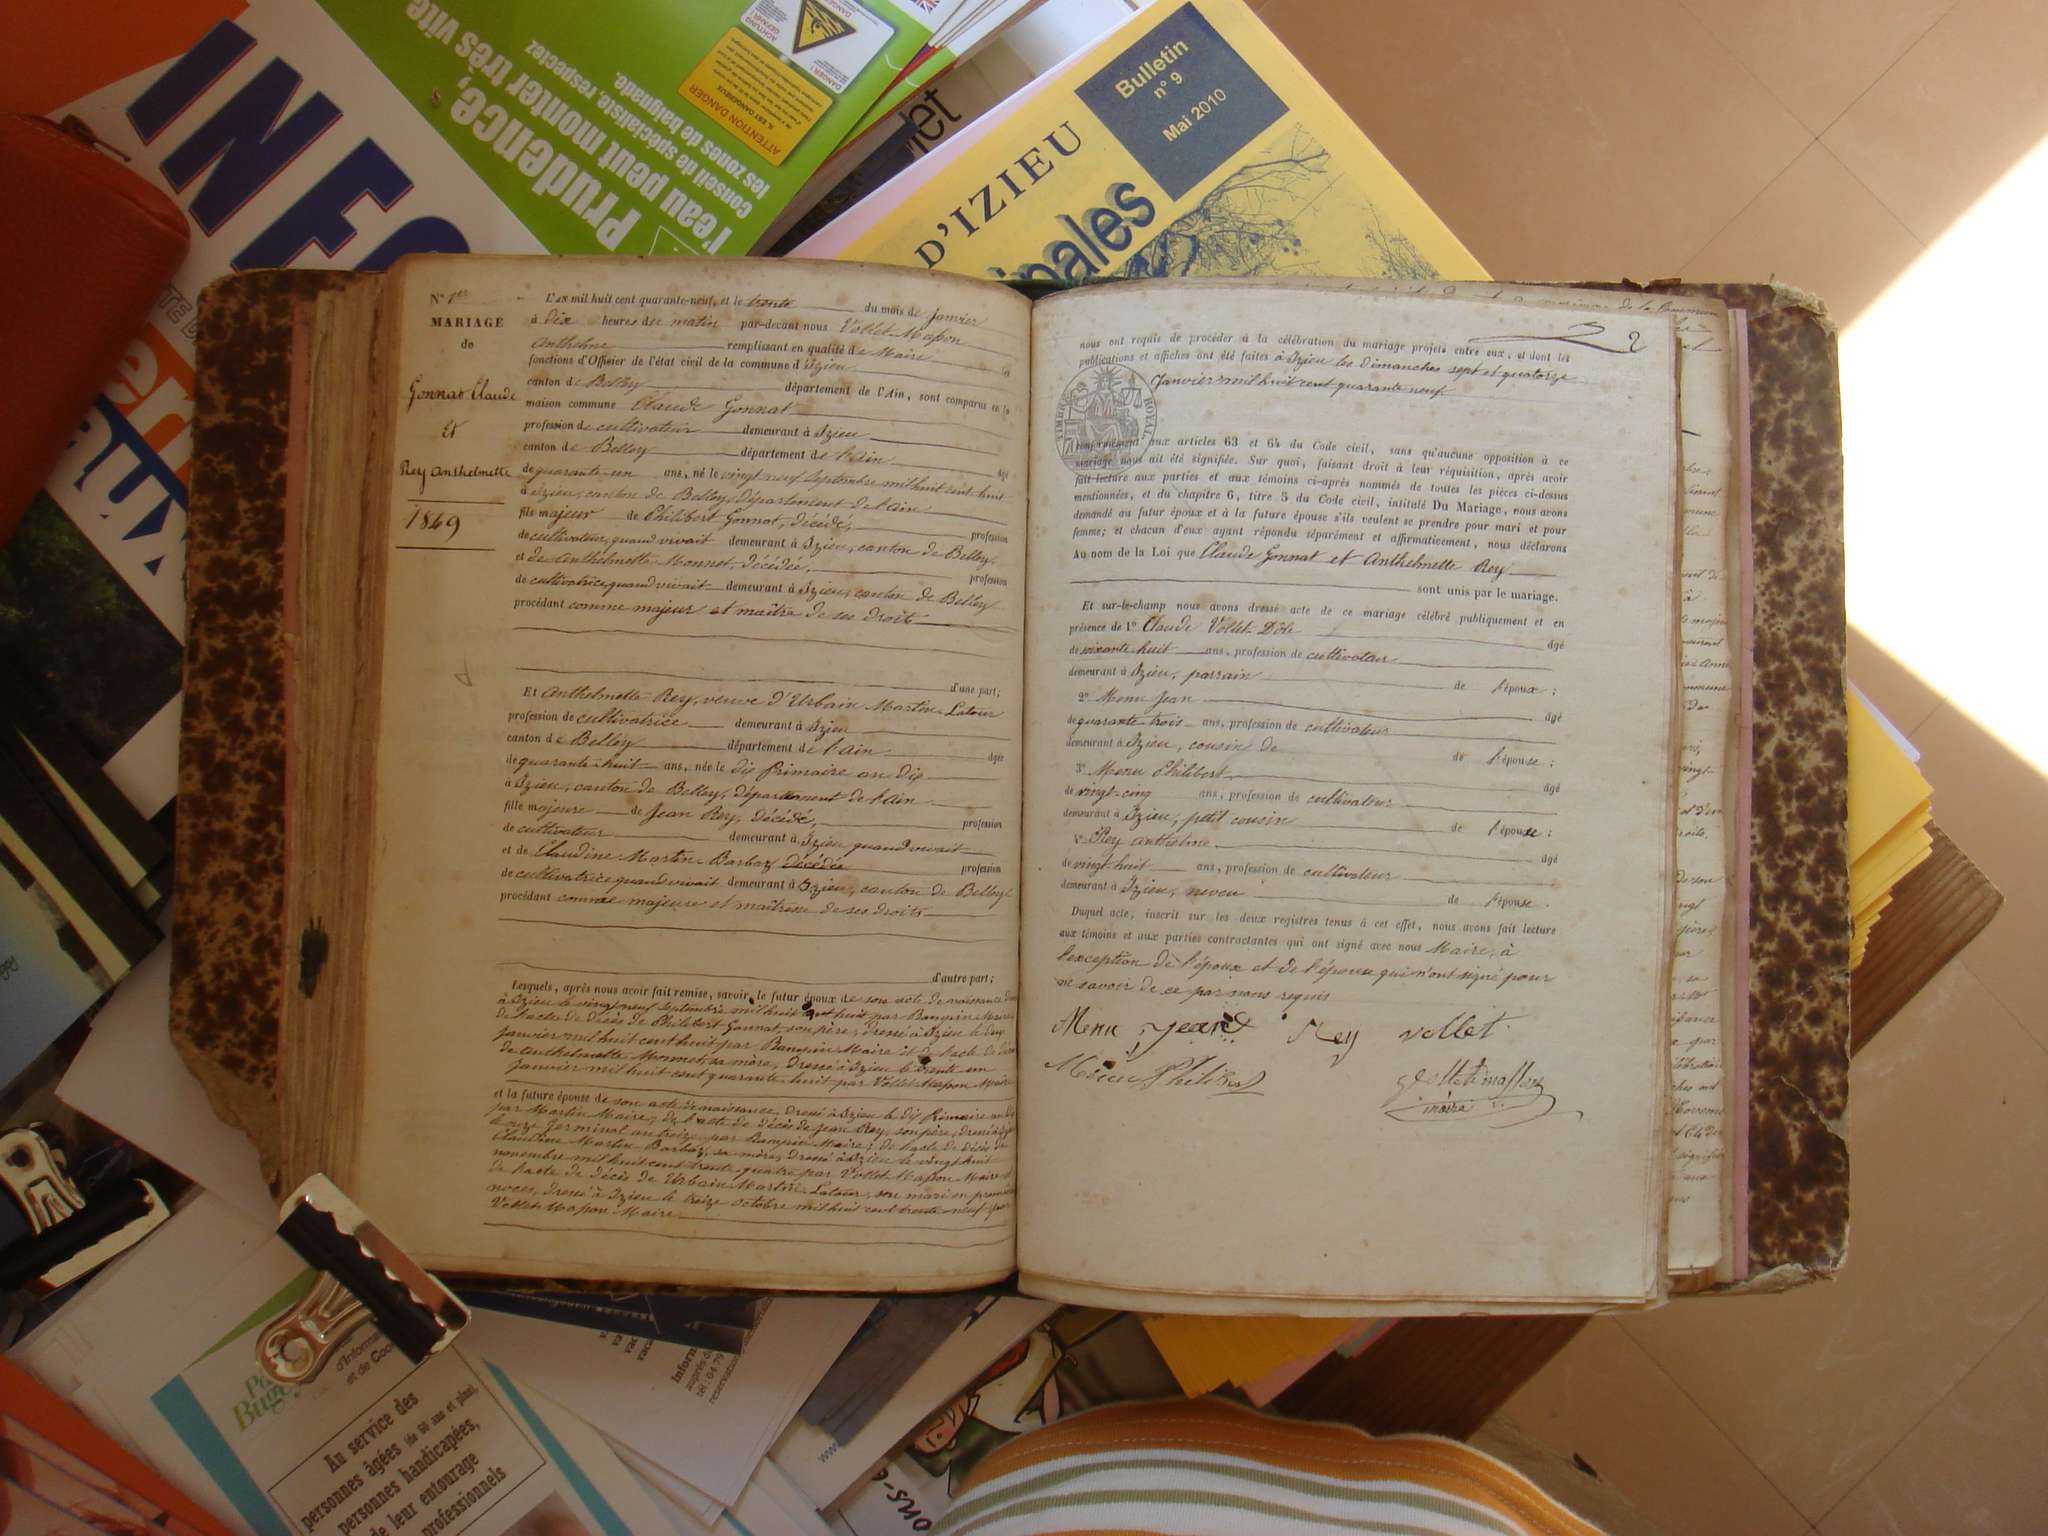 INFO
Prudence,
l'eau peut monter très vite
conseil de spécialiste, respectez
les zones de baignade.
ATTENTION DANGER
Bulletin
n° 9
Mai 2010
D'IZIEU
N° 1er
MARIAGE
de
Gonnat Claude
et
Rey Anthelmette
1849
L'an mil huit cent quarante-neuf, et le trente du mois de janvier
à dix heures du matin par-devant nous Vollet-Mapon
Anthelme remplissant en qualité de Maire
fonctions d'Officier de l'état civil de la commune d'Izieu
canton de Belley département de l'Ain, sont comparus en la
maison commune Claude Gonnat
profession de cultivateur demeurant à Izieu
canton de Belley département de l'ain âgé
de quarante-un ans, né le vingt neuf Septembre mil huit cent huit
à Izieu, canton de Belley, Département de l'ain
fils majeur de Philibert Gonnat, décédé, profession
de cultivateur, quand vivait demeurant à Izieu, canton de Belley,
et de Anthelmette Monnet, décédée, profession
de cultivatrice, quand vivait demeurant à Izieu, canton de Belley
procédant comme majeur et maître de ses droits
d'une part;
Et Anthelmette Rey, veuve d'Urbain Martin-Latour
profession de cultivatrice demeurant à Izieu
canton de Belley département de l'ain âgée
de quarante-huit ans, née le dix Frimaire an dix
à Izieu, canton de Belley, département de l'ain
fille majeure de Jean Rey, décédé, profession
de cultivateur demeurant à Izieu quand vivait
et de Claudine Martin-Barbaz décédée profession
de cultivatrice quand vivait demeurant à Izieu, canton de Belley
procédant comme majeure et maîtresse de ses droits
d'autre part;
Lesquels, après nous avoir fait remise, savoir, le futur époux de son acte de naissance
à Izieu le vingt neuf Septembre mil huit cent huit par Maire
de l'acte de décès de Philibert Gonnat, son père, dressé à Izieu le deux
janvier mil huit cent huit par Maire et de l'acte de décès
de Anthelmette Monnet, sa mère, dressé à Izieu le trente un
janvier mil huit cent quarante huit par Vollet Mapon Maire
et la future épouse de son acte de naissance, dressé à Izieu le dix Frimaire an dix
par Martin Maire, de l'acte de décès de Jean Rey, son père, dressé à Izieu
le onze Germinal an treize par Maire; de l'acte de décès de
Claudine Martin Barbaz, sa mère, dressé à Izieu le vingt huit
novembre mil huit cent trente quatre par Vollet Mapon Maire et
de l'acte de décès de Urbain Martin-Latour, son mari en premières
noces, dressé à Izieu le treize octobre mil huit cent trente neuf par
Vollet-Mapon Maire
2
nous ont requis de procéder à la célébration du mariage projeté entre eux, et dont les
publications et affiches ont été faites à Izieu les Dimanches sept et quatorze
Janvier mil huit cent quarante neuf
TIMBRE ROYAL
conformément aux articles 63 et 64 du Code civil, sans qu'aucune opposition à ce
mariage nous ait été signifiée. Sur quoi, faisant droit à leur réquisition, après avoir
fait lecture aux parties et aux témoins ci-après nommés de toutes les pièces ci-dessus
mentionnées, et du chapitre 6, titre 5 du Code civil, intitulé Du Mariage, nous avons
demandé au futur époux et à la future épouse s'ils veulent se prendre pour mari et pour
femme; et chacun d'eux ayant répondu séparément et affirmativement, nous déclarons
Au nom de la Loi que Claude Gonnat et Anthelmette Rey
sont unis par le mariage.
Et sur-le-champ nous avons dressé acte de ce mariage célébré publiquement et en
présence de 1° Claude Vollet-Dôle âgé
de soixante huit ans, profession de cultivateur
demeurant à Izieu, parrain de l'époux;
2° Menu Jean âgé
de quarante trois ans, profession de cultivateur
demeurant à Izieu, cousin de de l'épouse;
3° Menu Philibert âgé
de vingt-cinq ans, profession de cultivateur
demeurant à Izieu, petit cousin de l'épouse;
4° Rey anthelme âgé
de vingt-huit ans, profession de cultivateur
demeurant à Izieu, neveu de l'épouse.
Duquel acte, inscrit sur les deux registres tenus à cet effet, nous avons fait lecture
aux témoins et aux parties contractantes qui ont signé avec nous Maire, à
l'exception de l'époux et de l'épouse qui n'ont signé pour
ne savoir de ce par nous requis
Menu jean Rey vollet
Menu Philibert
maire
d'Information
et de Coo
Au service des
personnes âgées (de 60 ans et plus),
personnes handicapées,
de leur entourage
professionnels